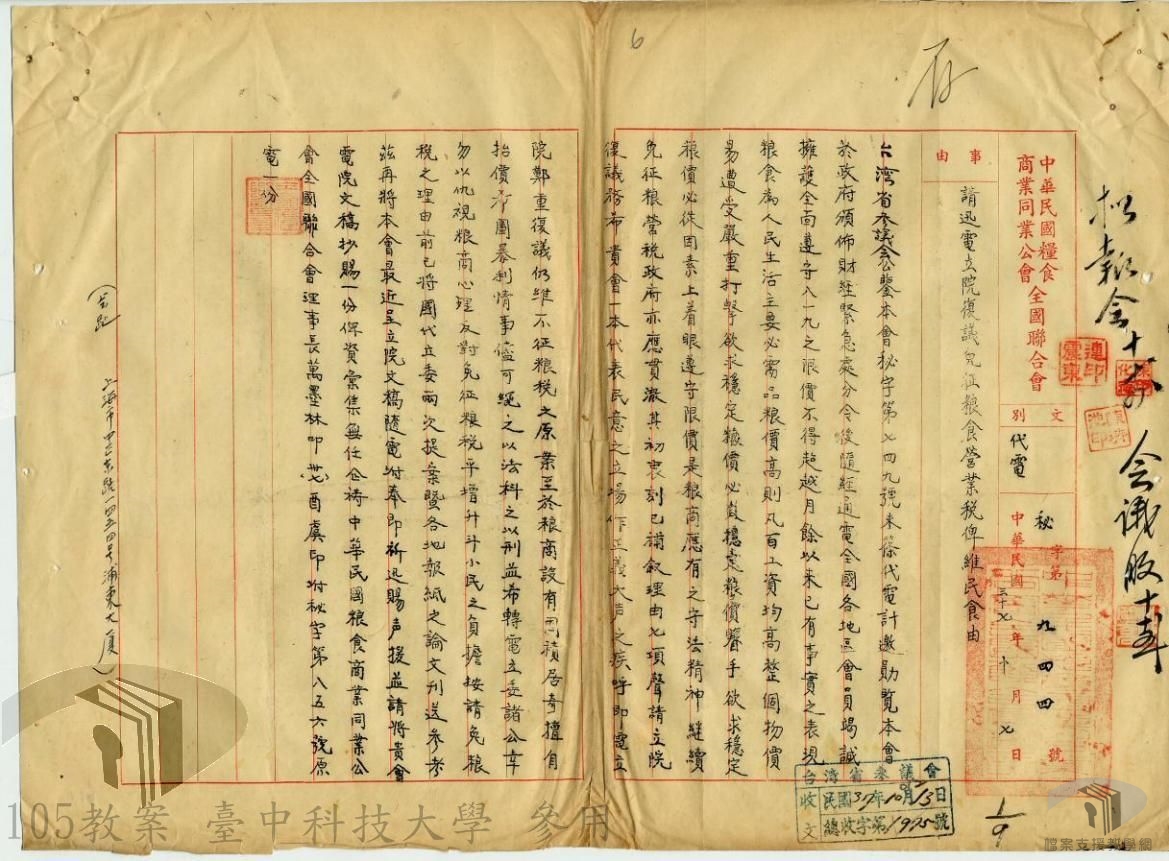 6
存
中華民國糧食
商業同業公會
全國聯合會
文別
代電
秘字第九四四號
中華民國三十七年十月七日
事由
請迅電立院復議免征粮食營業税俾維民食由
台灣省參議會公鑒本會秘字第七四九號未篠代電計邀勛覽本會
於政府頒佈財經緊急處分令後隨經通電全國各地區會員竭誠
擁護全面遵守八一九之限價不得超越月餘以來已有事實之表現
粮食為人民生活主要必需品粮價高則凡百工資均高整個物價
易遭受嚴重打擊欲求穩定粮價必
粮價必
免征粮營税政府亦應貫澈其初衷刻已補叙理由七項聲請立院
復議務希貴會一本代表民意之立場作正義大声之疾呼即電立
院鄭重復議仍維不征粮税之原案至於粮商設有囤積居奇擅自
抬價 圖暴利情事儘可繩之以法科之以刑並希轉電立委諸公幸
勿以仇視粮商心理反對免征粮税平增升斗小民之負擔按請免粮
税之理由前已將國代立委兩次提案暨各地報紙之論文刊送參考
茲再將本會最近呈立院文稿隨電附奉即祈迅賜声援並請將貴會
電院文稿抄賜一份俾資彙集無任企禱中華民國粮食商業同業公
會全國聯合會理事長萬墨林叩 酉虞印附秘字第八五六號原
電一份
上海市 東路一四五四号浦東大厦
台灣省參議會
收文
民國37年10月13日
總收字第1995號
1/9
105教案 臺中科技大學 參用
檔案支援教學網